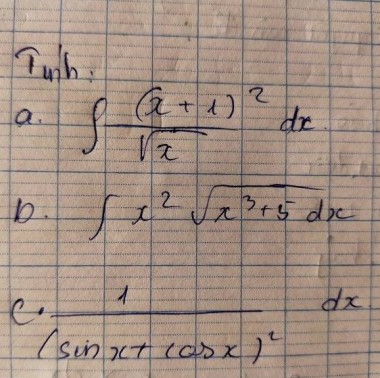 Tính:
a. ∫ (x + 1)² / √x dx
b. ∫ x² √(x³ + 5) dx
c. 1 / (sin x + cos x)² dx